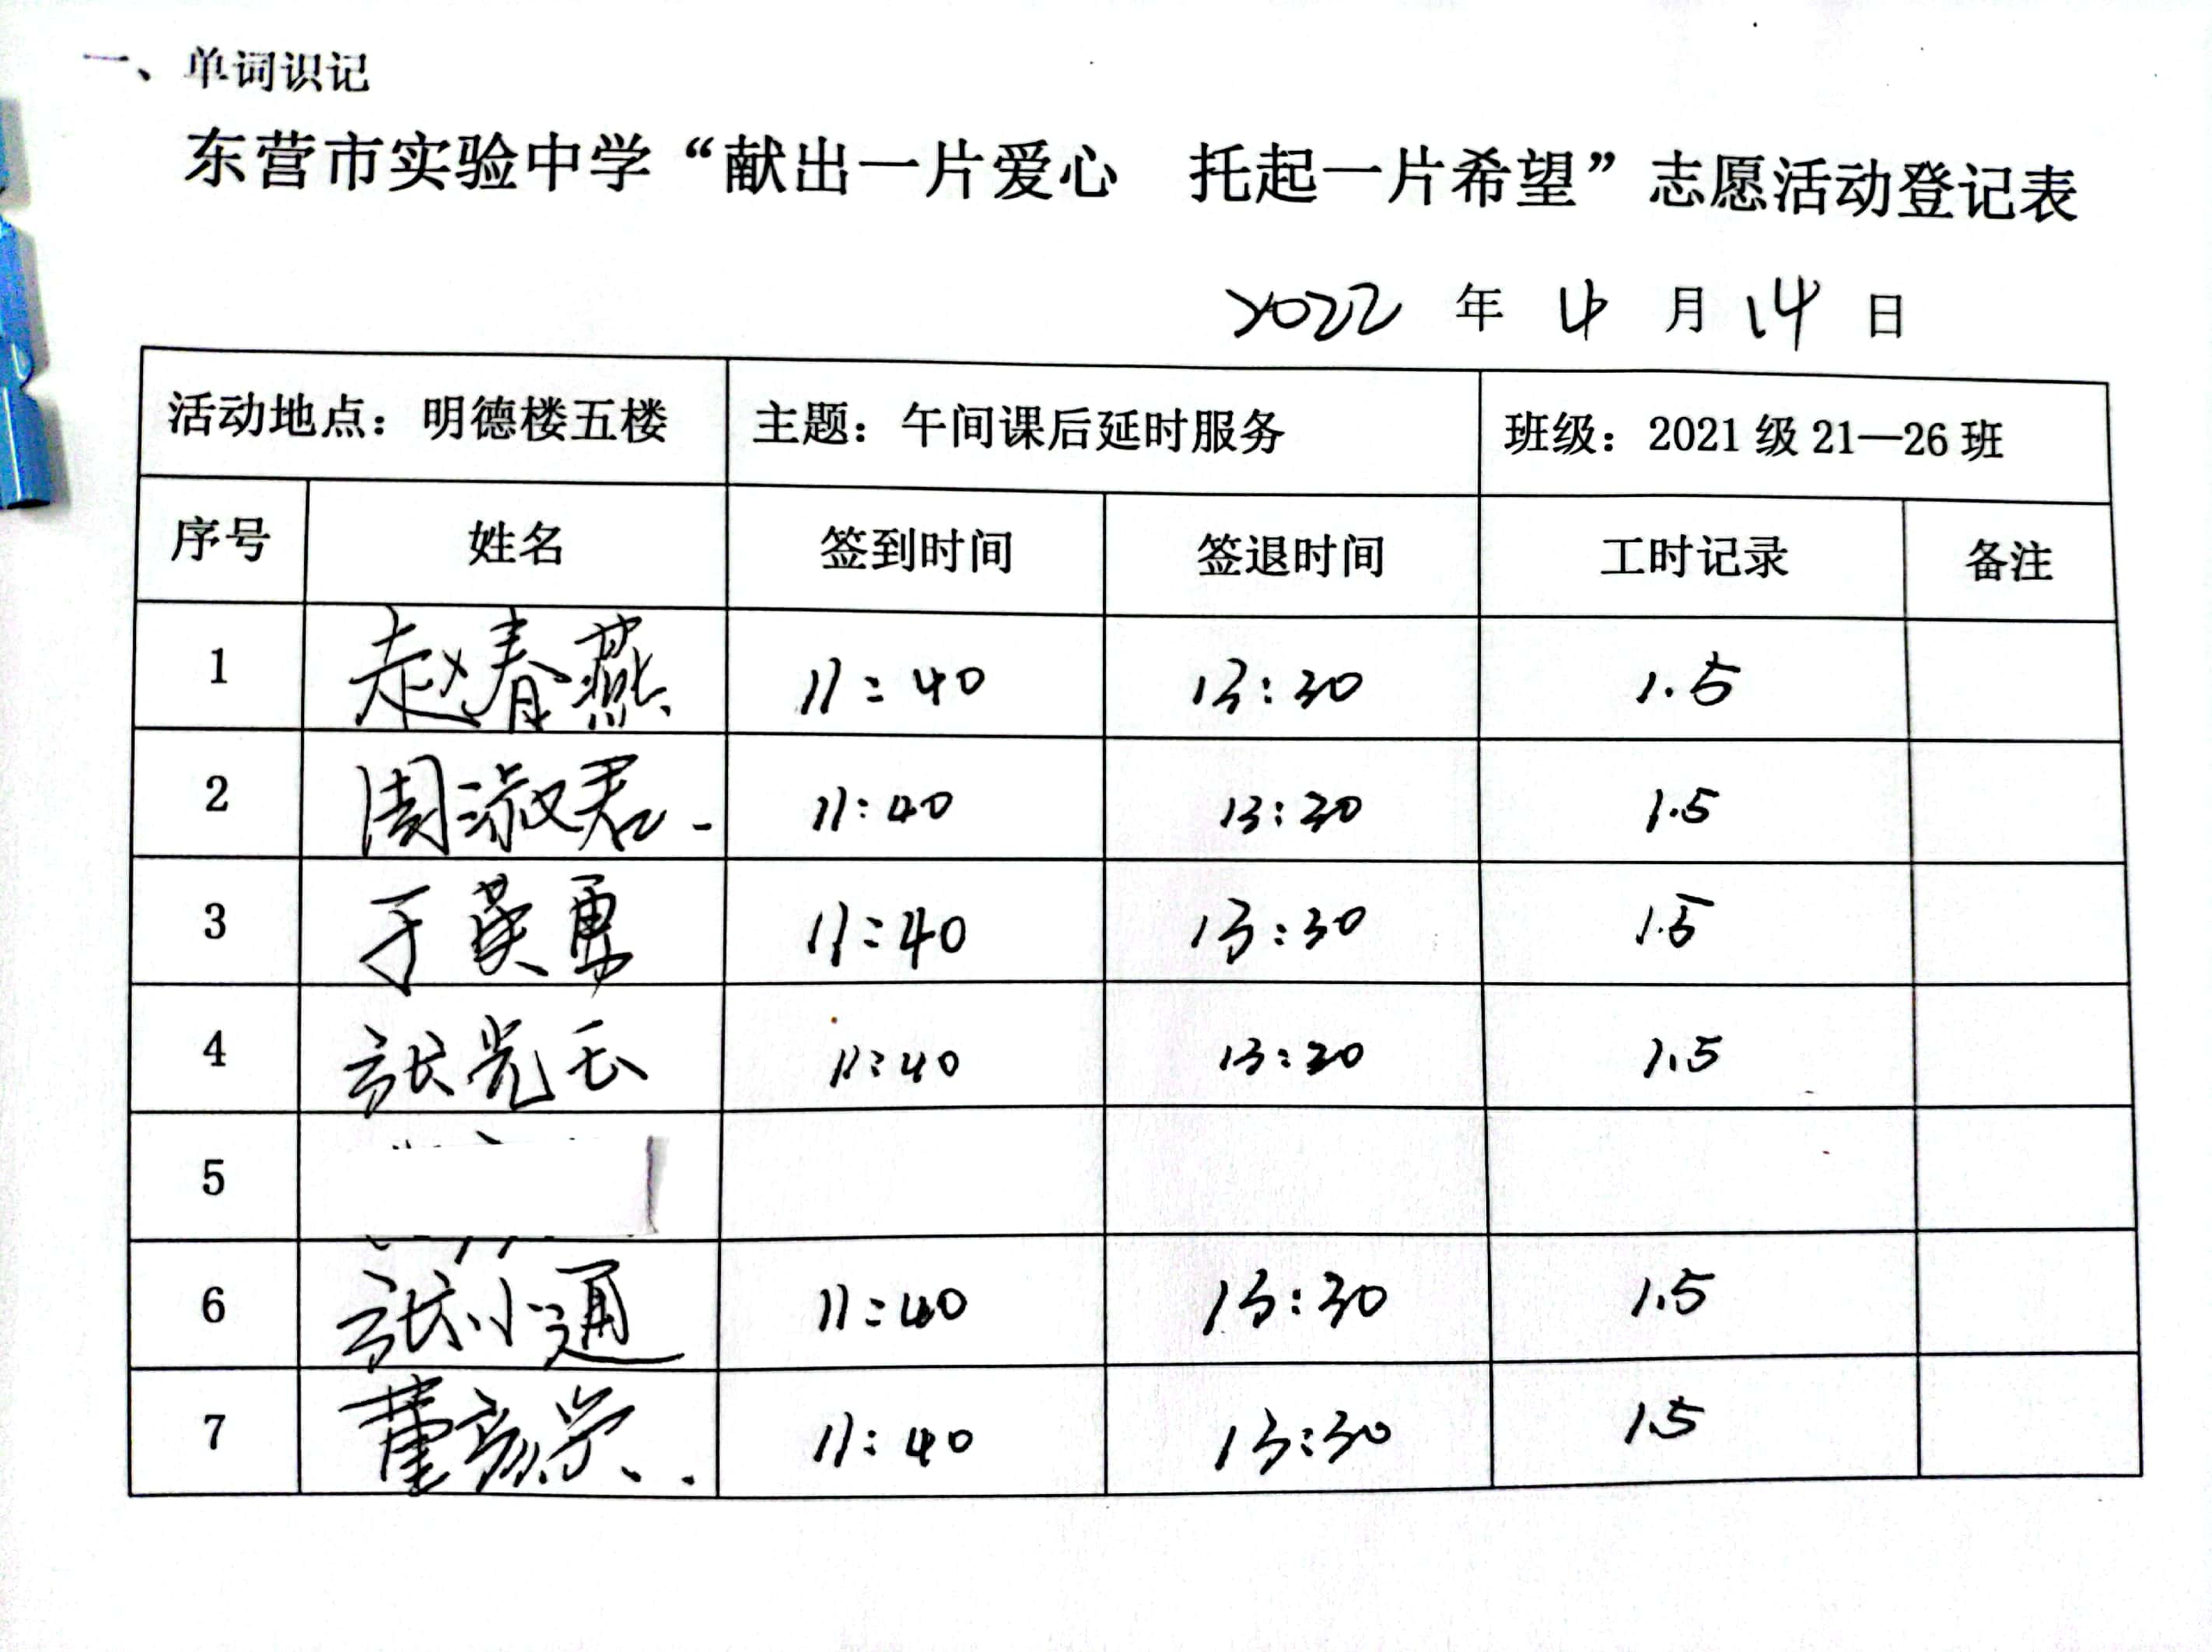 一、单词识记
东营市实验中学“献出一片爱心 托起一片希望”志愿活动登记表
2022 年 4 月 14 日
活动地点：明德楼五楼 主题：午间课后延时服务 班级：2021 级 21—26 班
序号 姓名 签到时间 签退时间 工时记录 备注
1 赵春燕 11:40 13:30 1.5
2 周淑君 11:40 13:30 1.5
3 于英勇 11:40 13:30 1.5
4 张光玉 11:40 13:30 1.5
5
6 张小通 11:40 13:30 1.5
7 董 11:40 13:30 1.5